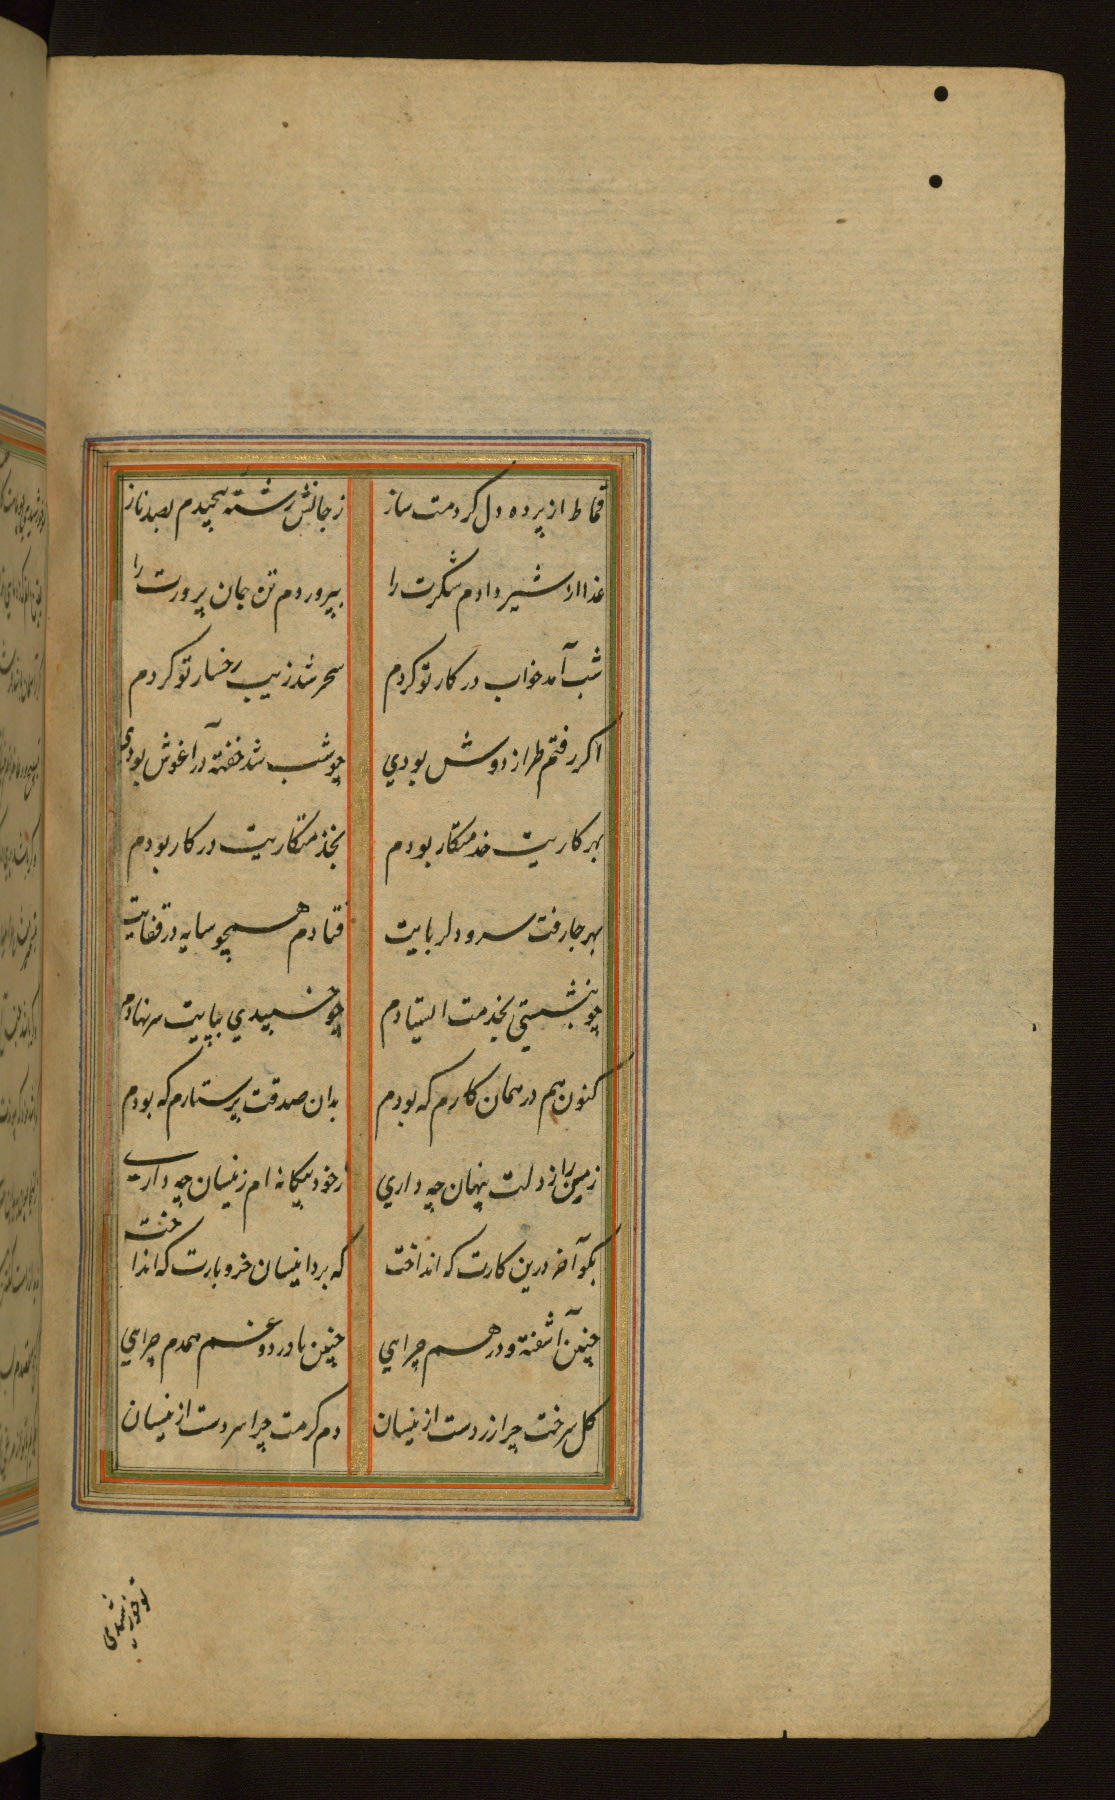 قماط از پرده دل کردمت ساز
ز جانش رشته پیچیدم بصد ناز
غذا از شیر دادم شکرت را
بپروردم تن جان پرورت را
شب آمد خواب در کار تو کردم
سحر شد زیب رخسار تو کردم
اکر رفتم طراز دوش بودي
چو شب شد خفته در آغوش بودي
بهر کاریت خدمتکار بودم
بخذمتکاریت در کار بودم
بهر جا رفت سرو دلربایت
فتادم همچو سایه در قفایت
چو بنشستي بخدمت ایستادم
چو خسبیدي بپایت سر نهادم
کنون هم در همان کارم که بودم
بدان صدقت پرستارم که بودم
ز من راز دلت پنهان چه داري
ز خود بیکانه ام زینسان چه داري
بکو آخر درین کارت که انداخت
که برد اینسان خر و بارت که انداخت
چنین آشفته و در هم چرایي
چنین با درد و غم همدم چرایي
کل سرخت چرا زردست ازینسان
دم کرمت چرا سردست ازینسان
تو خورشیدي